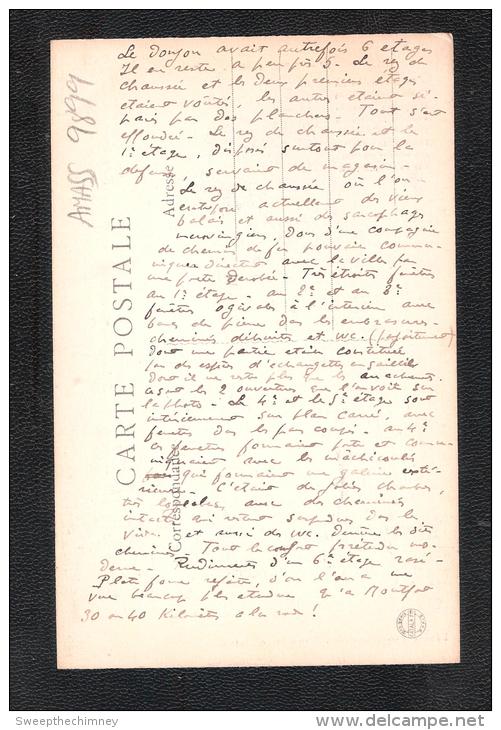 Le Donjon avait autrefois 6 etages
Il en reste a peu près 5. Le rez de
chaussée et les deux premiers étages
étaient voutés, les autres étaient sé-
parés par des planchers. Tout s'est
effondré. Le rez de chaussée et le
1er étage, disposé surtout pour la
defense, servaient de magasin.
Le rez de chaussée où l'on
actuellement des vieux
et aussi des sarcophages
merovingiens, d'une compagnie
de chemin de fer pouvait commu-
niquer directement avec la ville par
une porte derobée. Très étroites fenêtres
au 1er étage. au 2e et au 3e
fenêtres ogivales à l'interieur avec
bancs de pierre dans les embrasures.
cheminées et WC. (parfaitement)
dont une partie était constituée
par des espèces d'echauguettes en saillie
dont il ne reste plus que les
ayant les 2 ouvertures que l'on voit sur
la photo. Le 4e et le 5e étage sont
interieurement sur plan carré, avec
fenêtres dans les pans coupés. au 4e
les fenetres formaient porte et commu-
niquaient avec les machicoulis
qui formaient une galerie exté-
rieure. C'etait de jolies chambres,
très logeables, avec des cheminées
intactes qui restent suspendues dans le
vide. et aussi des WC. derrière les dites
cheminées. Tout le confort pretendu mo-
derne. Rudiments d'un 6e étage rasé.
Plate forme refaite, d'où l'on a une
vue beaucoup plus etendue qu'a Montfort
30 ou 40 Kilomètres a la ronde!
CARTE POSTALE
Correspondance
Adresse
AMASS 9899
Sweepthechimney
www.delcampe.net